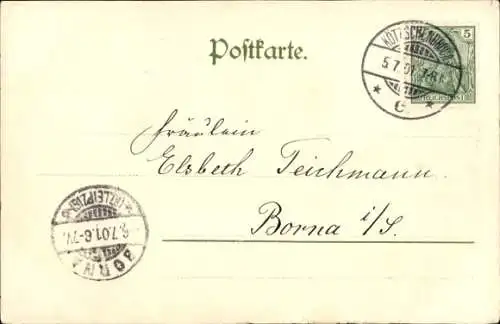 Postkarte.
KÖTZSCHENBRODA
5.7.01. 7-8
c.
5
REICHSPOST
Fräulein
Elsbeth Teichmann.
Borna i/S.
(BZ. LEIPZIG)
6.7.01.6-7V.
BORNA